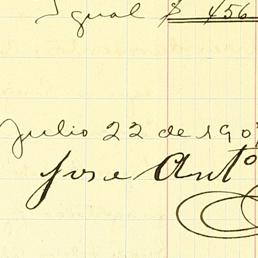 Igual $ 456
Julio 22 de 190
Jose Anto